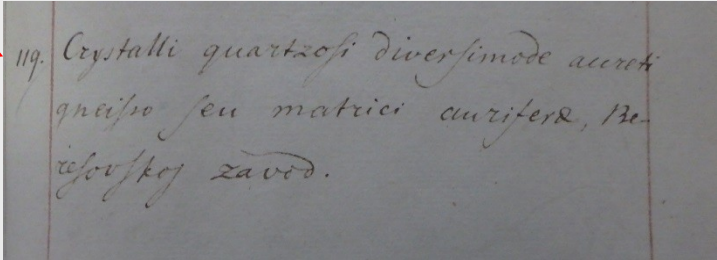 119. Crystalli quartzosi diversimode aureti
gneisso seu matrici auriferæ, Be-
resovskoj zavod.